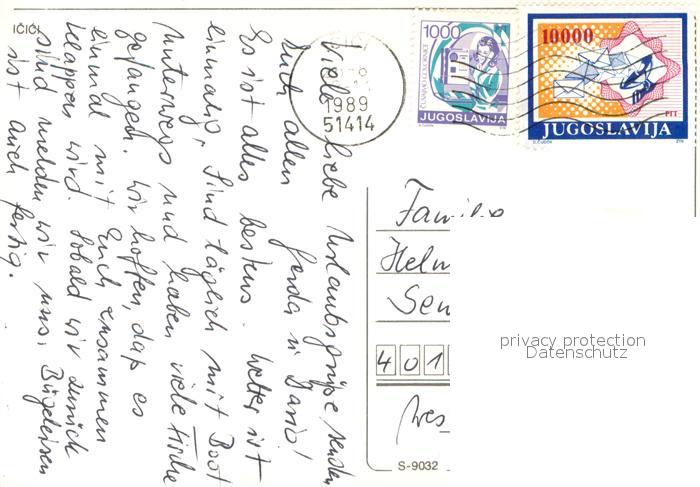 IČIĆI
Viele liebe Urlaubsgrüße senden
Euch allen
Gerda u.
Es ist alles bestens. Wetter ist
einmalig. Sind täglich mit Boot
unterwegs und haben viele Fische
gefangen. Wir hoffen, daß es
einmal mit Euch zusammen
klappen wird. Sobald wir zurück
sind melden wir uns.
ist auch fertig.
1989
51414
1000
JUGOSLAVIJA
10000
PTT
JUGOSLAVIJA
Familie
Helm
Sen
401
Wes
S-9032
privacy protection
Datenschutz